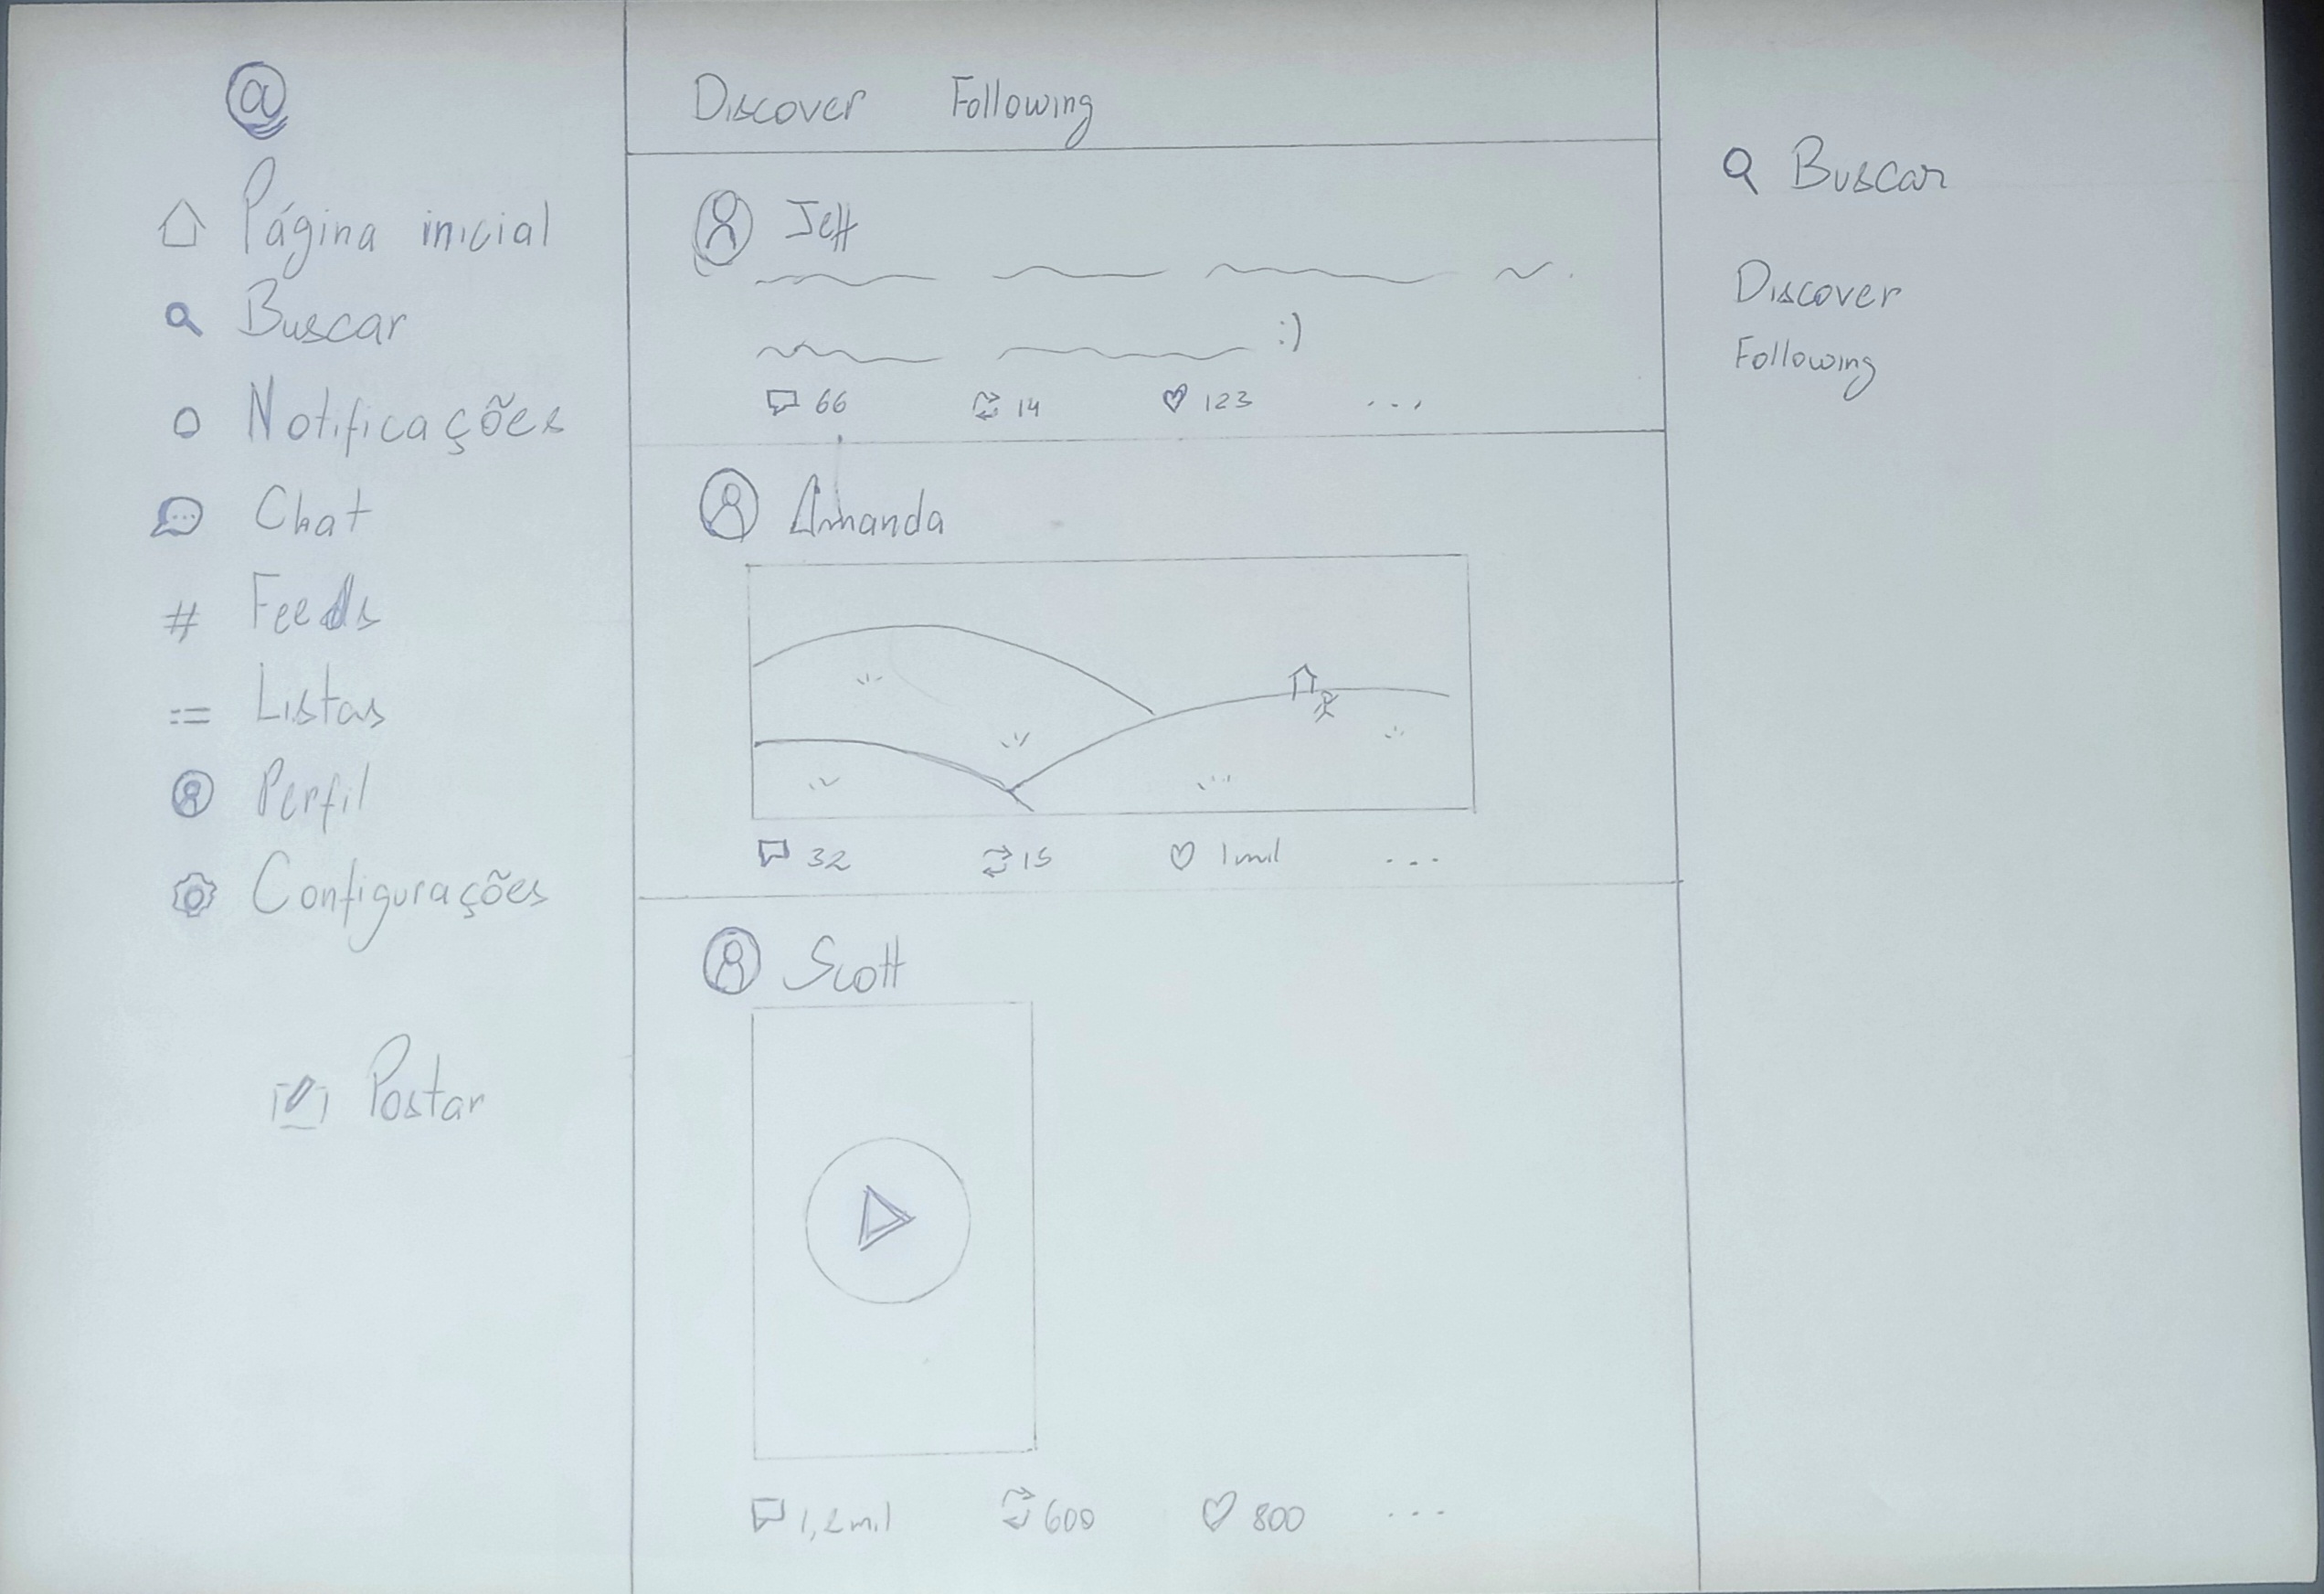 @
Página inicial
Buscar
Notificações
Chat
# Feeds
Listas
Perfil
Configurações
Postar
Discover Following
Jeff
:)
66 14 123 ...
Amanda
32 15 1 mil ...
Scott
1,2 mil 600 800 ...
Buscar
Discover
Following